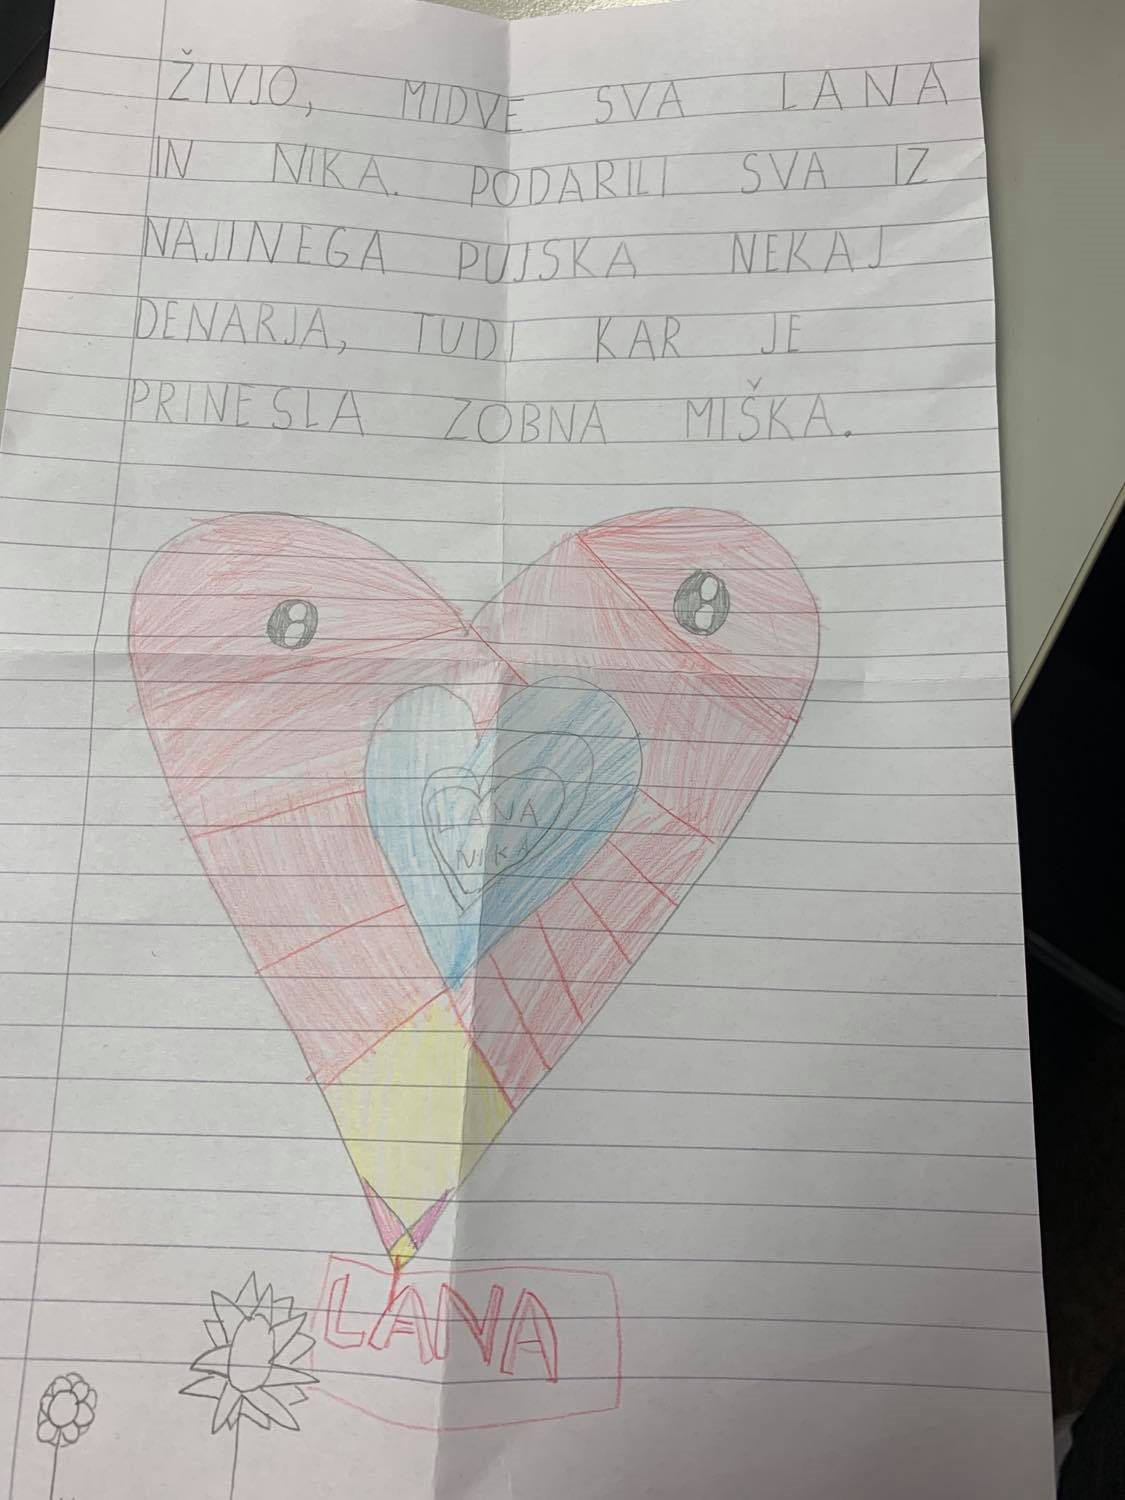 ŽIVJO, MIDVE SVA LANA
IN NIKA. PODARILI SVA IZ
NAJINEGA PUJSKA NEKAJ
DENARJA, TUDI KAR JE
PRINESLA ZOBNA MIŠKA.
LANA
NIKA
LANA